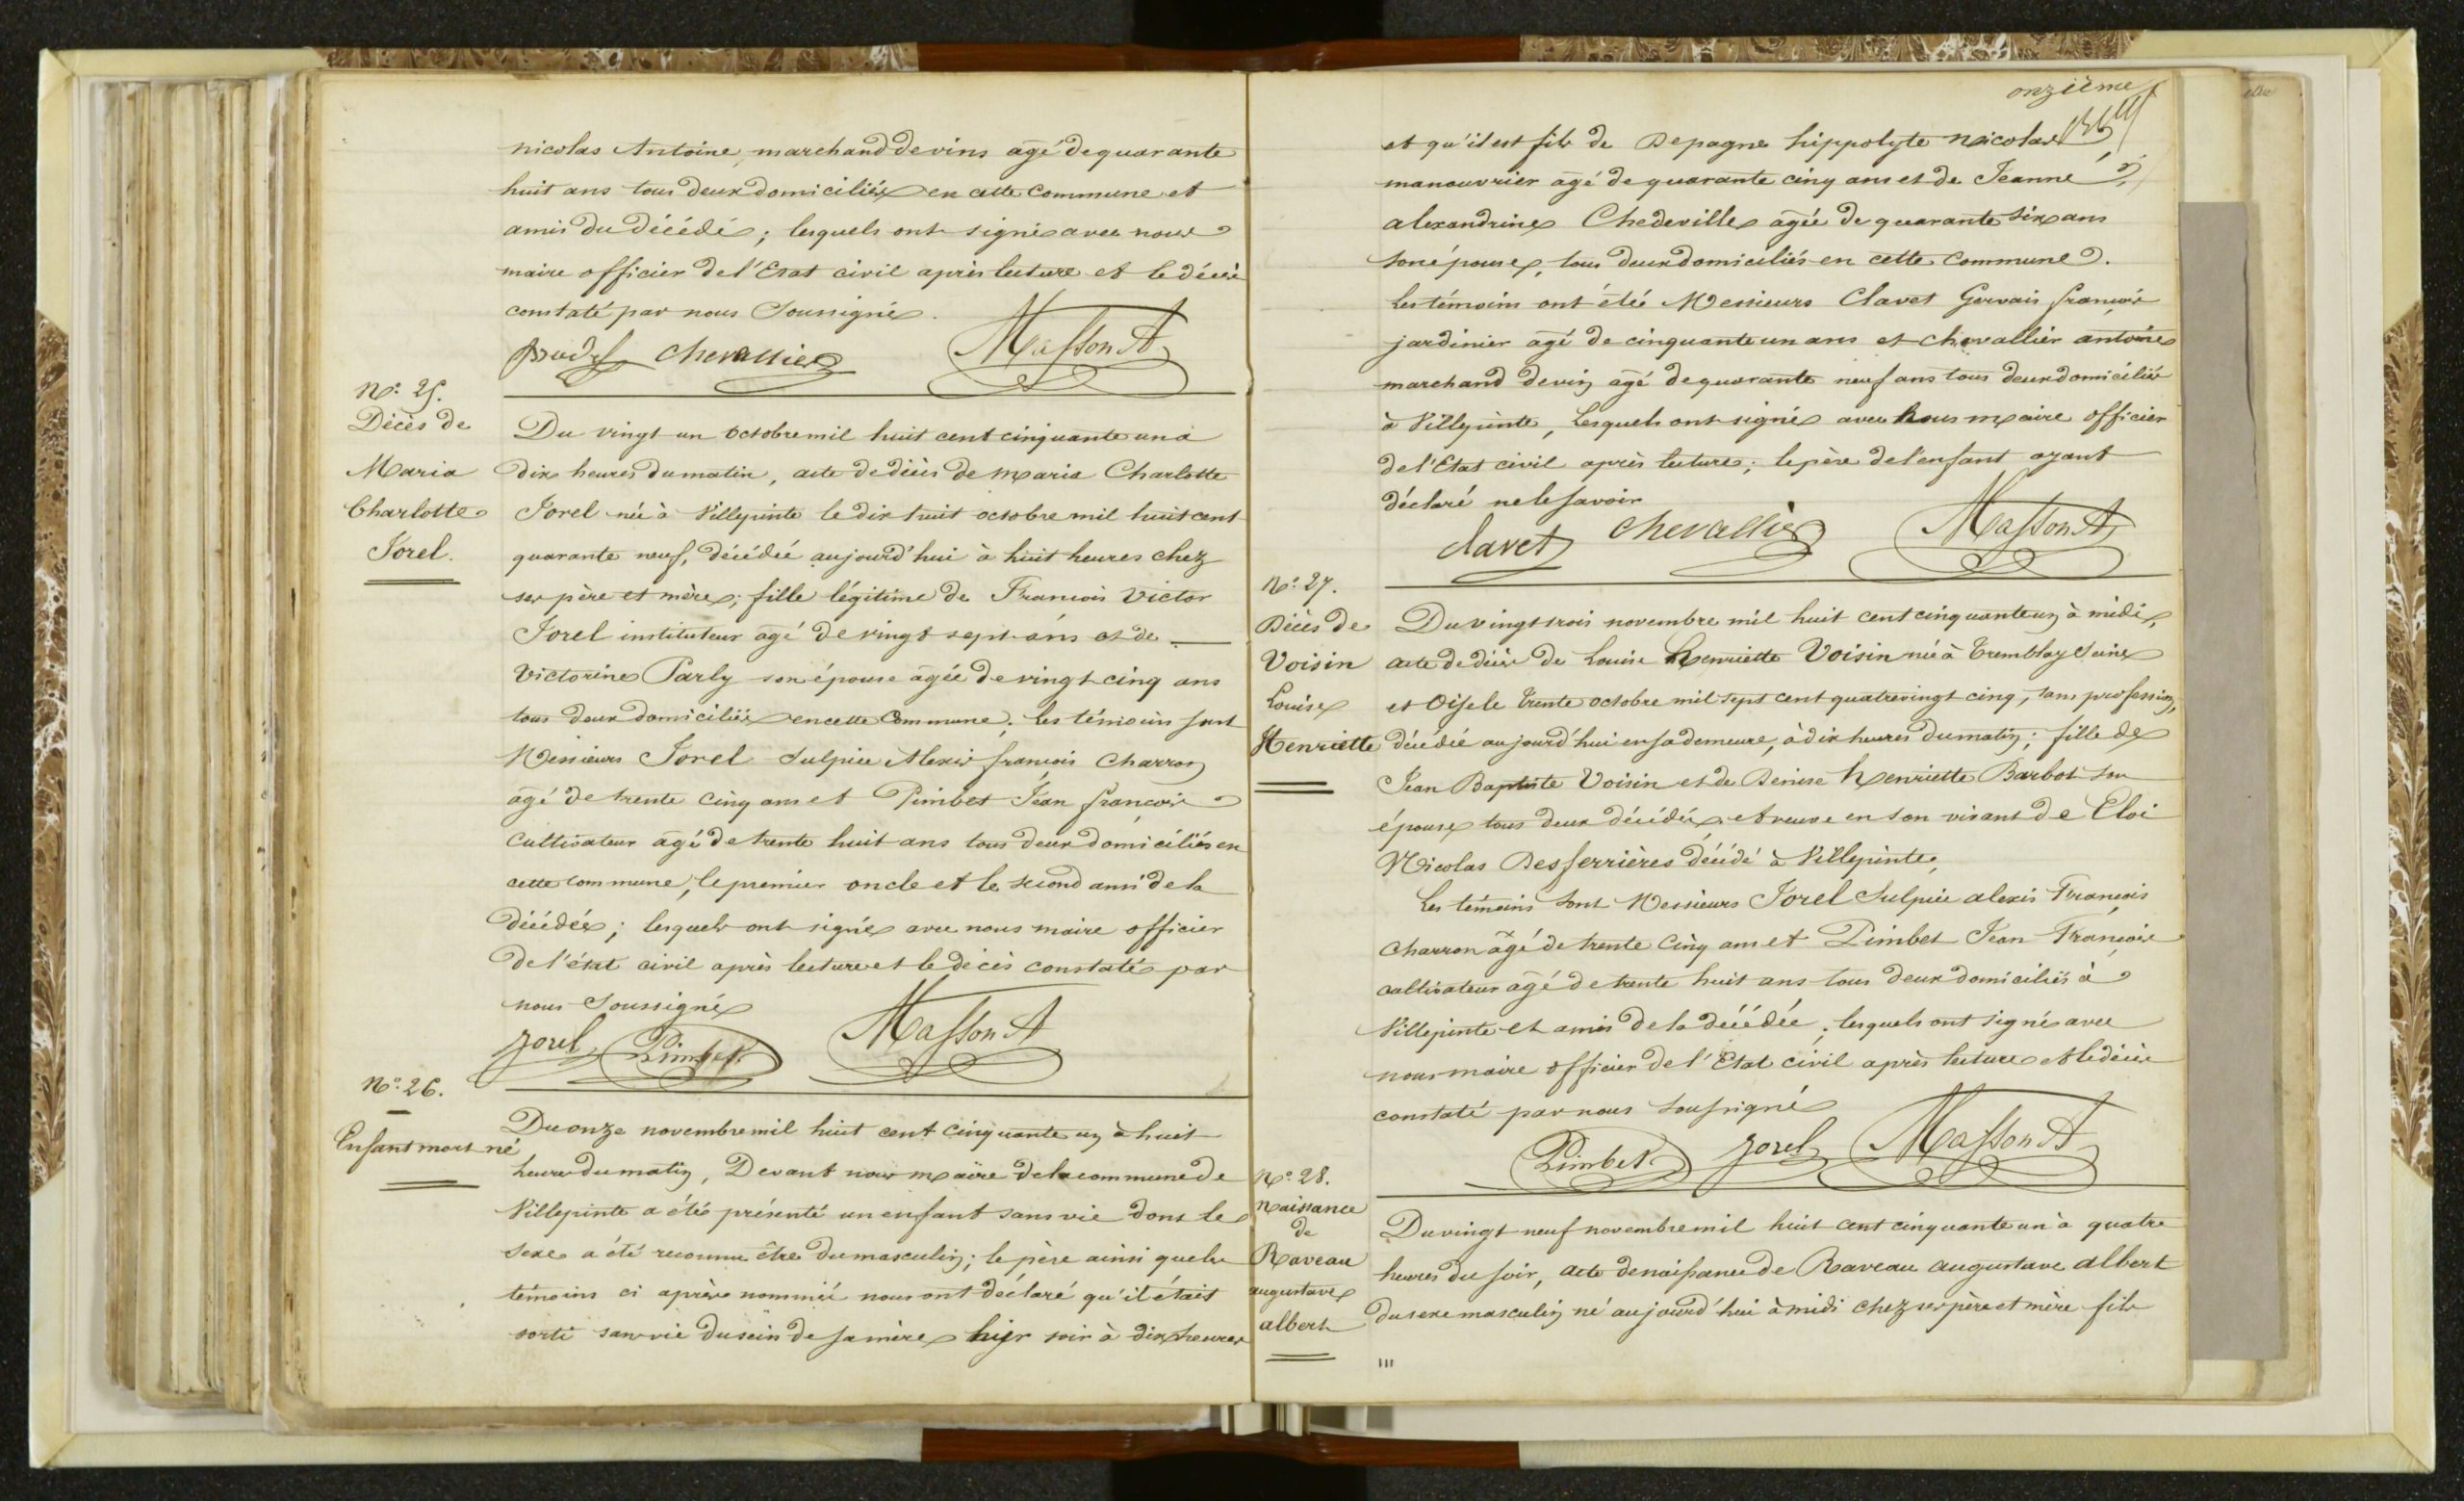 nicolas Antoine, marchand de vins agé de quarante
huit ans tous deux domiciliés en cette commune et
amis du décédé; lesquels ont signé avec nous
maire officier de l'Etat civil après lecture et le décès
constaté par nous Soussigné.
chevallier Masson A
No: 25.
Décès de
Maria
Charlotte
Jorel.
Du vingt un octobre mil huit cent cinquante un à
dix heures du matin, acte de décès de Maria Charlotte
Jorel née à Villepinte le dix huit octobre mil huit cent
quarante neuf, décédée aujourd'hui à huit heures chez
ses père et mère; fille légitime de François Victor
Jorel instituteur agé de vingt sept ans et de
Victorine Parly son épouse agée de vingt cinq ans
tous deux domiciliés en cette Commune. Les témoins sont
Messieurs Jorel Sulpice Alexis françois Charron
agé de trente cinq ans et Pimbet Jean françois
Cultivateur agé de trente huit ans tous deux domiciliés en
cette commune, le premier oncle et le second ami de la
décédée; lesquels ont signé avec nous maire officier
de l'état civil après lecture et le décès constaté par
nous Soussigné
Jorel Pimbet Masson A
No: 26.
Enfant mort né
Du onze novembre mil huit cent cinquante un à huit
heures du matin, Devant nous maire de la commune de
Villepinte a été présenté un enfant sans vie dont le
sexe a été reconnu être du masculin; le père ainsi que les
témoins ci après nommés nous ont déclaré qu'il était
sorti sans vie du sein de sa mère hier soir à dix heures
onzième
et qu'il est fils de Depagne hippolyte Nicolas
manouvrier agé de quarante cinq ans et de Jeanne
alexandrine Chedeville agée de quarante six ans
son épouse, tous deux domiciliés en cette commune.
Les témoins ont été Messieurs Clavet Gervais françois
jardinier agé de cinquante un ans et chevallier antoine
marchand de vin agé de quarante neuf ans tous deux domiciliés
à Villepinte, Lesquels ont signé avec Nous maire officier
de l'Etat civil après lecture; le père de l'enfant ayant
déclaré ne le savoir
clavet chevallier Masson A
No: 27.
Décès de
Voisin
Louise
Henriette
Du vingt trois novembre mil huit cent cinquante un à midi,
acte de décès de Louise henriette Voisin née à Tremblay Seine
et Oise le trente octobre mil sept cent quatre vingt cinq, sans profession,
décédée aujourd'hui en sa demeure, à dix heures du matin; fille de
Jean Baptiste Voisin et de Denise henriette Barbot son
épouse tous deux décédés et veuve en son vivant de Eloi
Nicolas Desferrières décédé à Villepinte,
Les témoins sont Messieurs Jorel Sulpice alexis François
charron agé de trente cinq ans et Pimbet Jean François
cultivateur agé de trente huit ans tous deux domiciliés à
Villepinte et amis de la décédée; lesquels ont signé avec
nous maire officier de l'Etat civil après lecture et le décès
constaté par nous soussigné
Pimbet Jorel Masson A
No: 28.
Naissance
de
Raveau
augustave
albert
Du vingt neuf novembre mil huit cent cinquante un à quatre
heures du soir, acte de naissance de Raveau augustave albert
du sexe masculin né aujourd'hui à midi chez ses père et mère fils